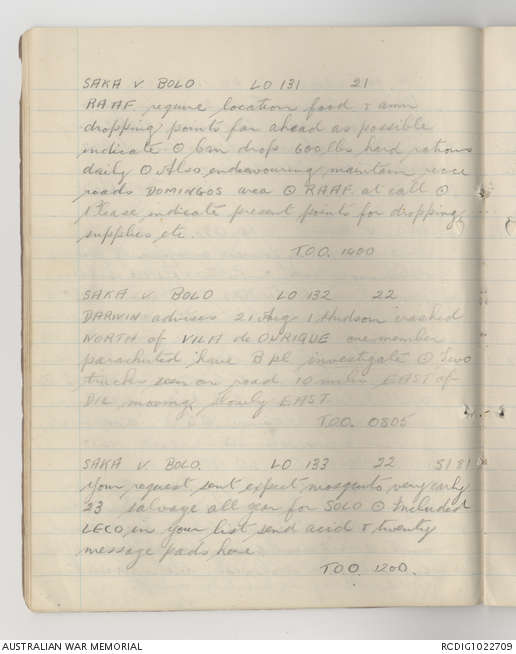 SAKA V BOLO LO 131 21
RAAF require location food & amn
dropping points far ahead as possible
indicate ⊙ 6m drops 600 lbs hard rations
daily ⊙ Also endeavouring maintain recce
roads DOMINGOS area ⊙ RAAF at call ⊙
Please indicate present points for dropping
supplies etc.
T.O.O. 1400
SAKA V. BOLO LO 132 22
DARWIN advises 21 Aug 1 Hudson crashed
NORTH of VILA de OURIQUE one member
parachuted have B pl investigate ⊙ Two
trucks seen on road 10 miles EAST of
DIL moving slowly EAST
T.O.O. 0805
SAKA V. BOLO. LO 133 22 5181
Your request sent expect mosquito very early
23 salvage all gear for SOLO ⊙ Included
LECO in your list send acid & twenty
message pads here
T.O.O. 1200.
AUSTRALIAN WAR MEMORIAL
RCDIG1022709